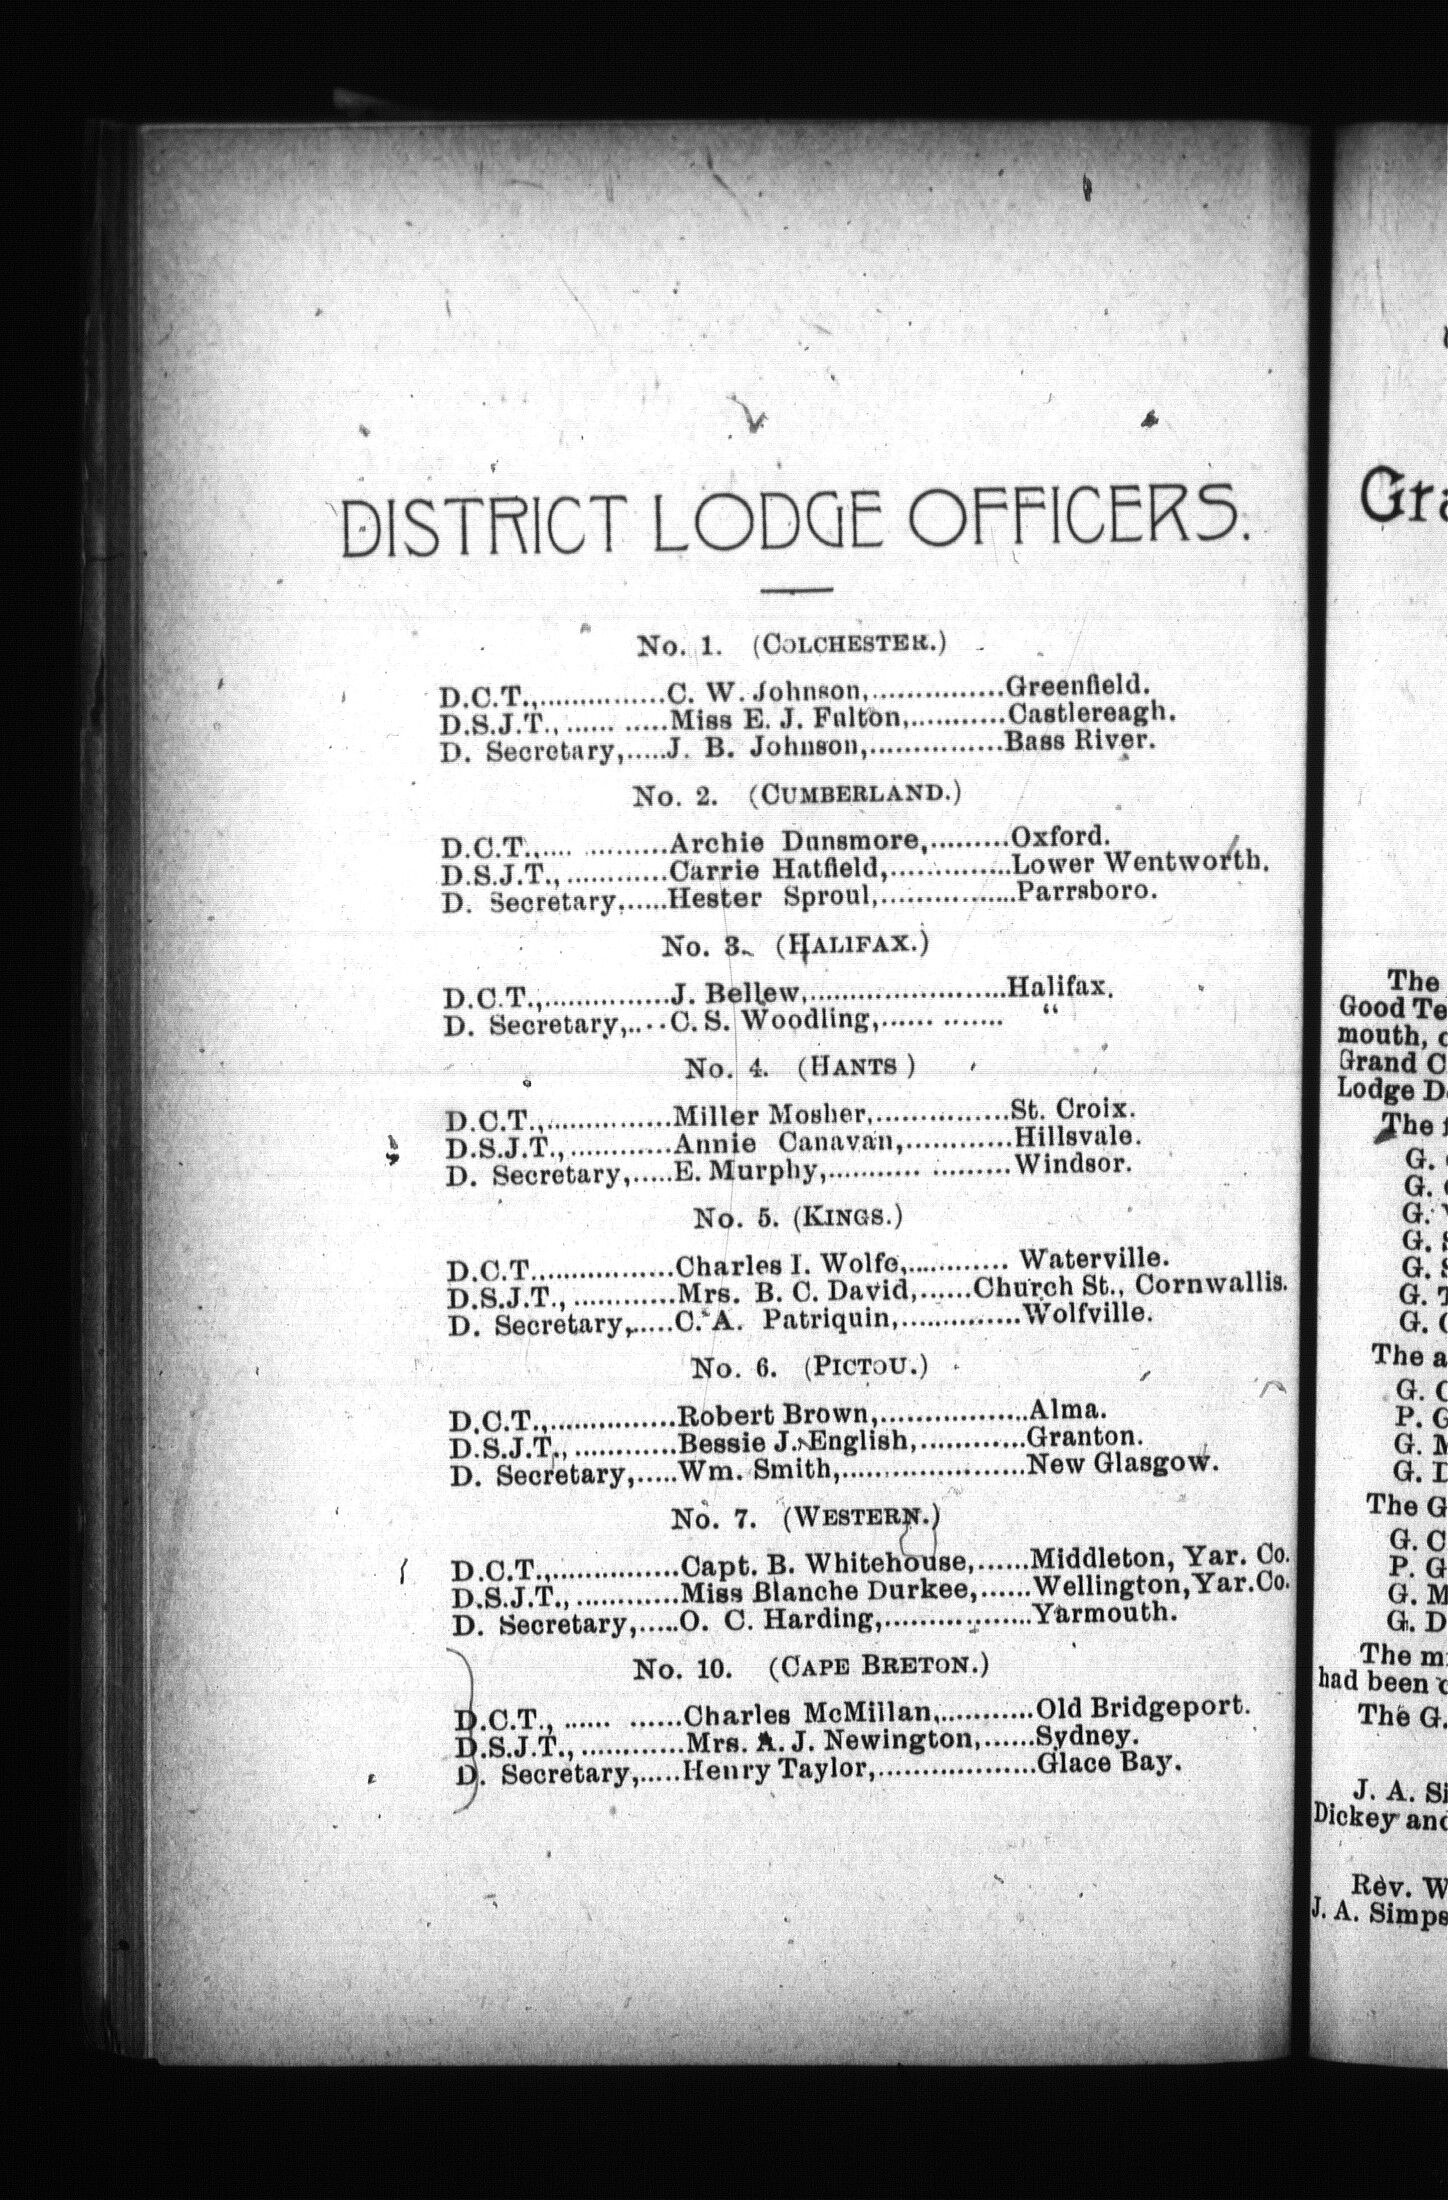 DISTRICT LODGE OFFICERS.
No. 1. (COLCHESTER.)
D.C.T.,...............C. W. Johnson,...............Greenfield.
D.S.J.T.,...... .....Miss E. J. Fulton,...........Castlereagh.
D. Secretary,.....J. B. Johnson,................Bass River.
No. 2. (CUMBERLAND.)
D.C.T.,.... ..........Archie Dunsmore,.........Oxford.
D.S.J.T.,............Carrie Hatfield,..............Lower Wentworth.
D. Secretary,.....Hester Sproul,................Parrsboro.
No. 3. (HALIFAX.)
D.C.T.,...............J. Bellew,.......................Halifax.
D. Secretary,....C. S. Woodling,...... ....... “
No. 4. (HANTS )
D.C.T.,...............Miller Mosher,................St. Croix.
D.S.J.T.,............Annie Canavan,............Hillsvale.
D. Secretary,.....E. Murphy,........... .........Windsor.
No. 5. (KINGS.)
D.C.T.,................Charles I. Wolfe,............ Waterville.
D.S.J.T.,............Mrs. B. C. David,......Church St., Cornwallis.
D. Secretary,.....C. A. Patriquin,..............Wolfville.
No. 6. (PICTOU.)
D.C.T.,...............Robert Brown,.................Alma.
D.S.J.T.,............Bessie J. English,............Granton.
D. Secretary,.....Wm. Smith,.....................New Glasgow.
No. 7. (WESTERN.)
D.C.T.,...............Capt. B. Whitehouse,......Middleton, Yar. Co.
D.S.J.T.,............Miss Blanche Durkee,......Wellington,Yar.Co.
D. Secretary,.....O. C. Harding,.................Yarmouth.
No. 10. (CAPE BRETON.)
D.C.T., ...... ......Charles McMillan,...........Old Bridgeport.
D.S.J.T.,............Mrs. A. J. Newington,......Sydney.
D. Secretary,.....Henry Taylor,..................Glace Bay.
The
Good
mouth,
Grand
Lodge
The
G.
G.
G.
G.
G.
G.
G.
The
G.
P.
G.
G.
The
G.
P.
G.
G.
The
had been
The G.
J. A.
Dickey and
Rev.
J. A.